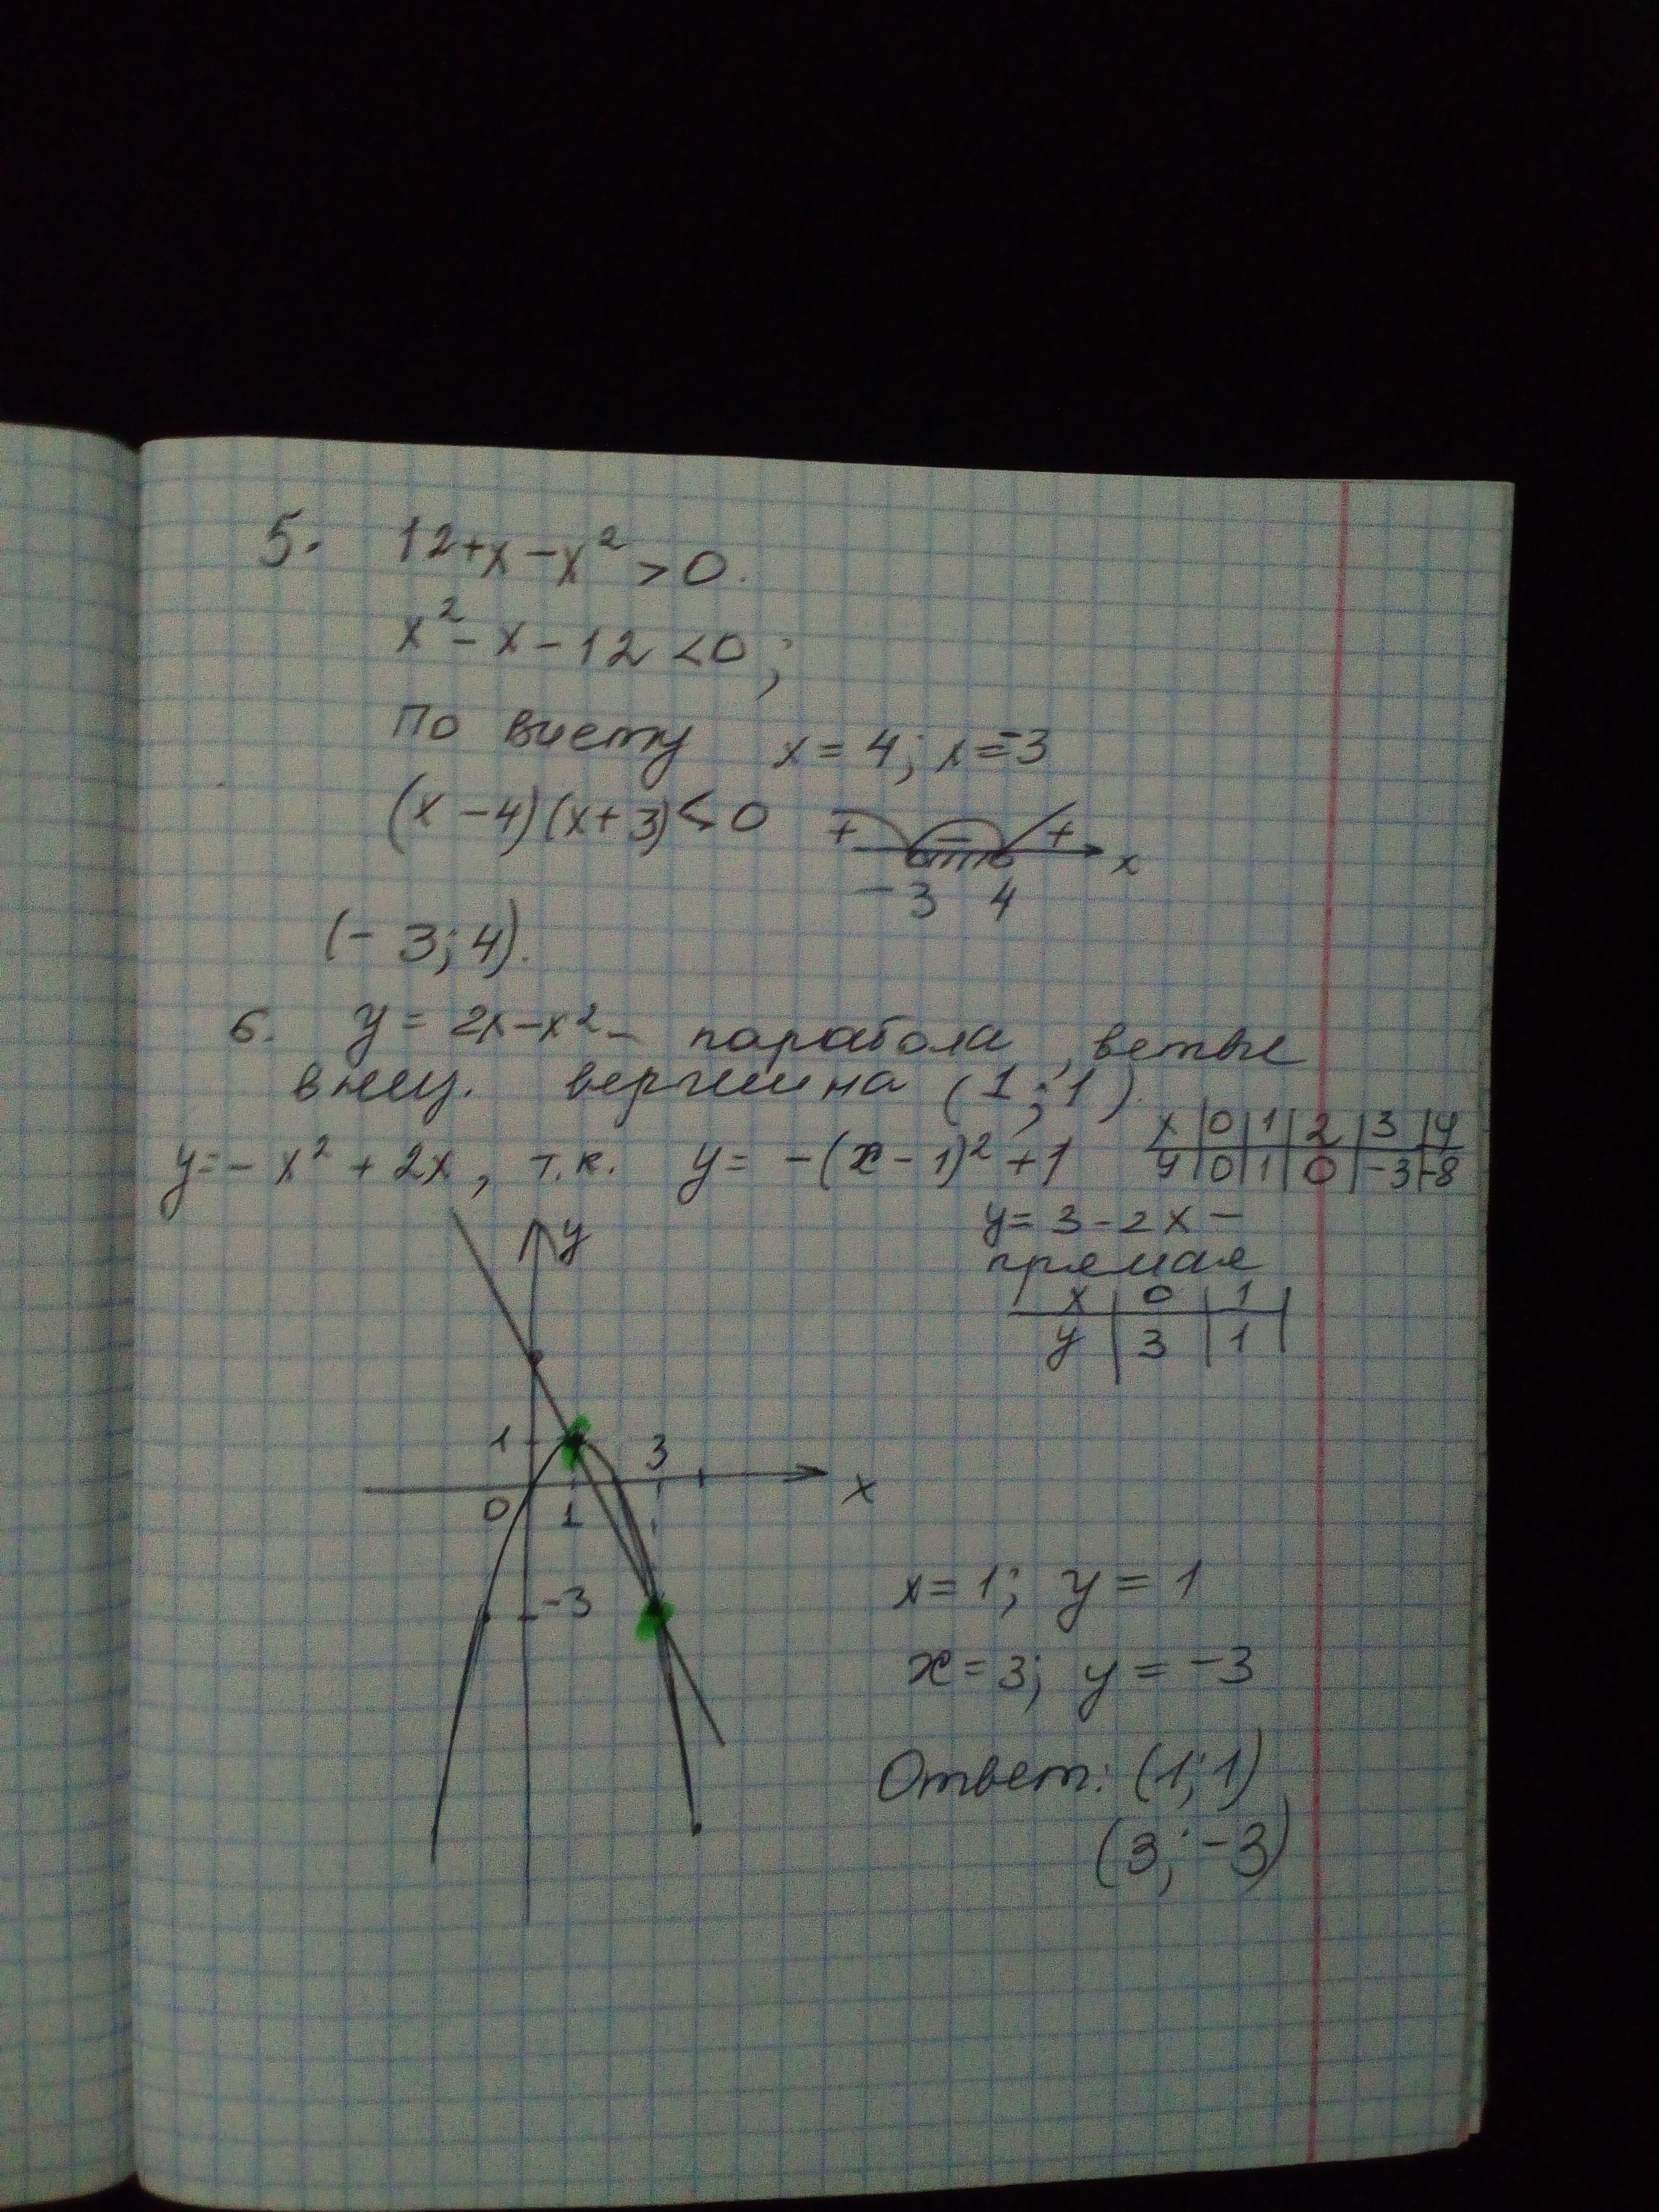 5. 12+x-x² >0.
x²-x-12 <0;
по виету x=4; x=-3
(x-4)(x+3)<0
+ - + x
-3 4
(-3; 4).
6. y = 2x-x² - парабола, ветви
вниз. вершина (1; 1).
y=-x²+2x, т.к. y= -(x-1)²+1
x 0 1 2 3 4
y 0 1 0 -3 -8
y= 3-2x -
прямая
x 0 1
y 3 1
y
1 3
x
0 1
-3
x=1; y=1
x=3; y=-3
Ответ: (1; 1)
(3; -3)